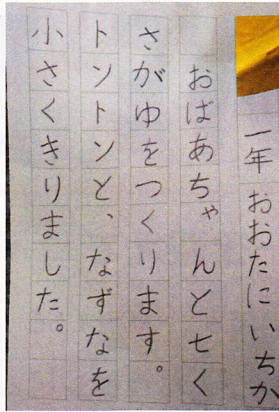 一年 おおたに いちか
おばあちゃんと七く
さがゆをつくります。
トントンと、なずなを
小さくきりました。